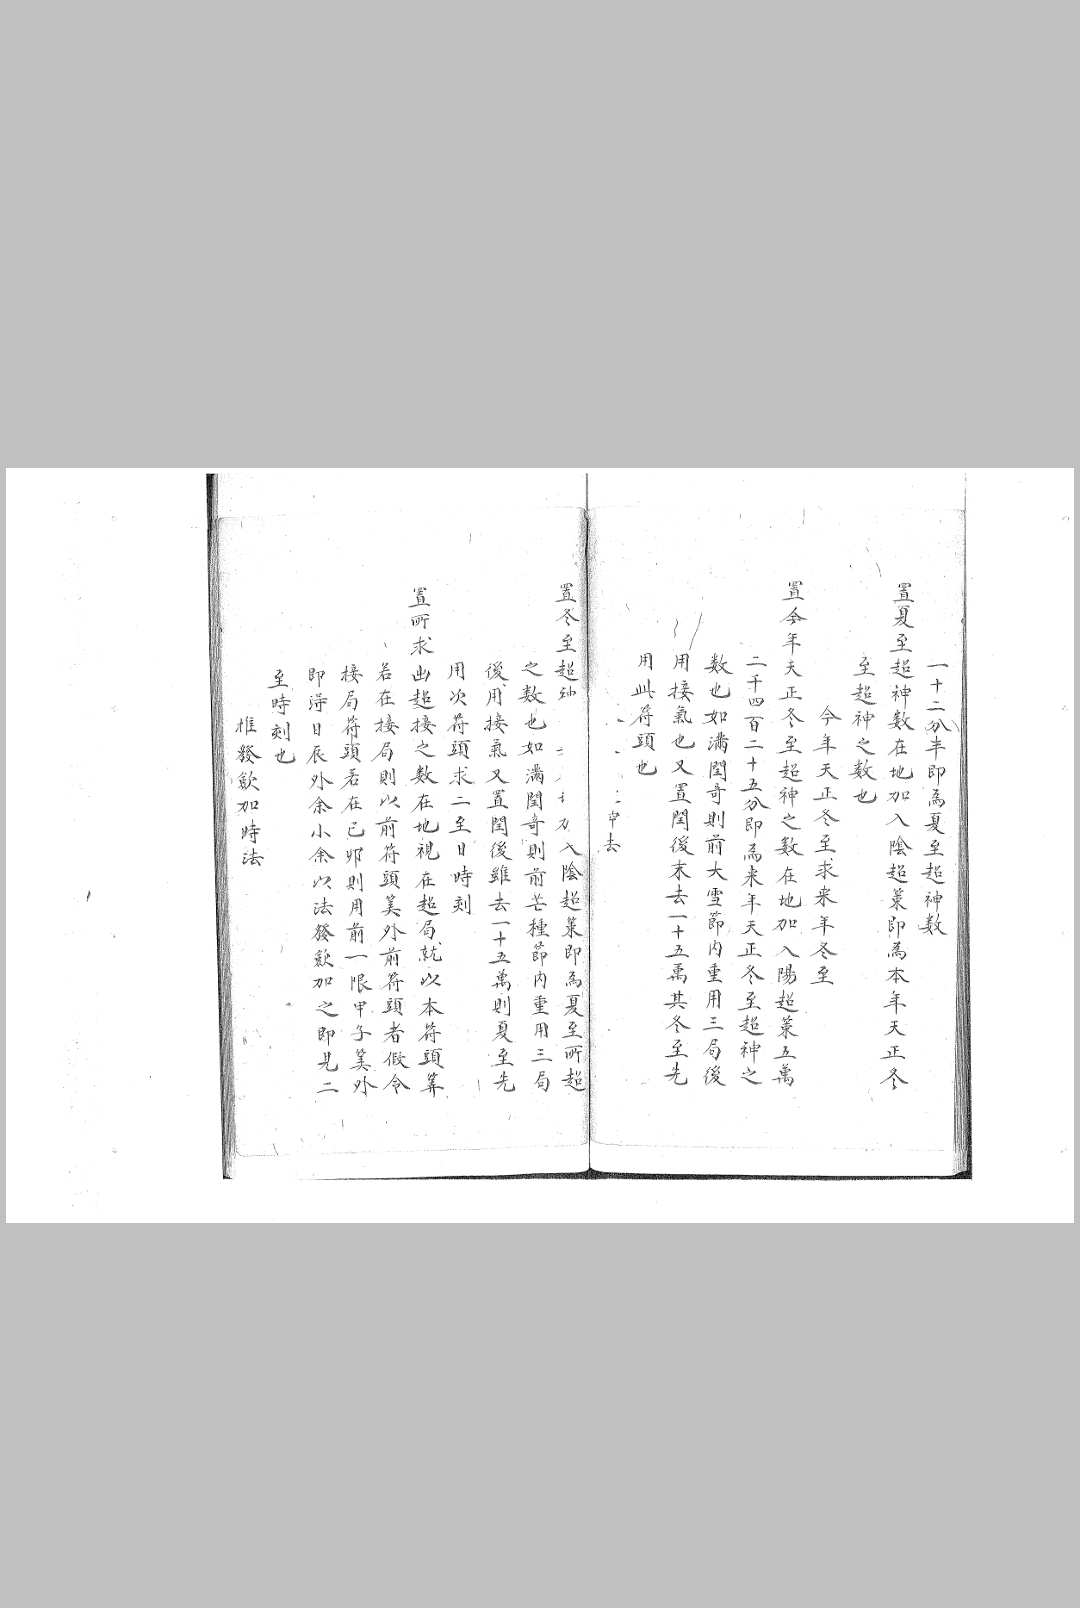 一十二分半即為夏至超神数
置夏至超神数在地加入陰超策即為本年天正冬
至超神之数也
今年天正冬至求来年冬至
置今年天正冬至超神之数在地加入陽超策五萬
二千四百二十五分即為来年天正冬至超神之
数也如満閏奇則前大雪節内重用三局後
用接氣也又置閏後末去一十五萬其冬至先
用此符頭也
去
置冬至超 入陰超策即為夏至所超
之数也如満閏奇則前芒種節内重用三局
後用接氣又置閏後雖去一十五萬則夏至先
用次符頭求二至日時刻
置所求出超接之数在地視在超局就以本符頭筭
若在接局則以前符頭筭外前符頭者假令
接局符頭若在己卯則用前一限甲子筭外
即淂日辰外余小余以法發歛加之即見二
至時刻也
推發歛加時法